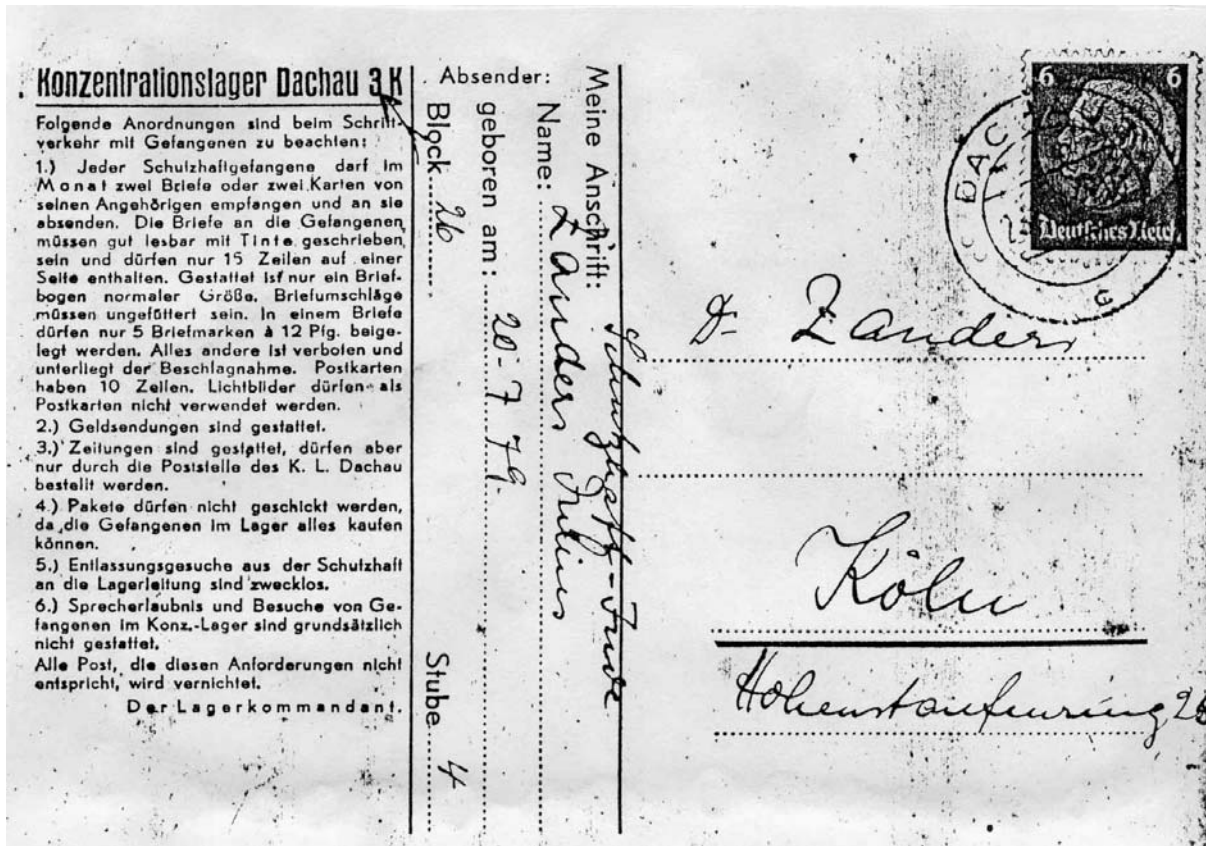 Konzentrationslager Dachau 3 K
Folgende Anordnungen sind beim Schrift-
verkehr mit Gefangenen zu beachten:
1.) Jeder Schutzhaftgefangene darf im
Monat zwei Briefe oder zwei Karten von
seinen Angehörigen empfangen und an sie
absenden. Die Briefe an die Gefangenen
müssen gut lesbar mit Tinte geschrieben
sein und dürfen nur 15 Zeilen auf einer
Seite enthalten. Gestattet ist nur ein Brief-
bogen normaler Größe. Briefumschläge
müssen ungefüttert sein. In einem Briefe
dürfen nur 5 Briefmarken à 12 Pfg. beige-
legt werden. Alles andere ist verboten und
unterliegt der Beschlagnahme. Postkarten
haben 10 Zeilen. Lichtbilder dürfen als
Postkarten nicht verwendet werden.
2.) Geldsendungen sind gestattet.
3.) Zeitungen sind gestattet, dürfen aber
nur durch die Poststelle des K. L. Dachau
bestellt werden.
4.) Pakete dürfen nicht geschickt werden,
da die Gefangenen im Lager alles kaufen
können.
5.) Entlassungsgesuche aus der Schutzhaft
an die Lagerleitung sind zwecklos.
6.) Sprecherlaubnis und Besuche von Ge-
fangenen im Konz.-Lager sind grundsätzlich
nicht gestattet.
Alle Post, die diesen Anforderungen nicht
entspricht, wird vernichtet.
Der Lagerkommandant.
Absender:
Meine Anschrift:
Schutzhaft-Jude
Name: Zanders Julius
geboren am: 20-7 79.
Block 26 Stube 4
6 6
Deutsches Reich
DAC
Dr. Zanders
Köln
Hohenstaufenring